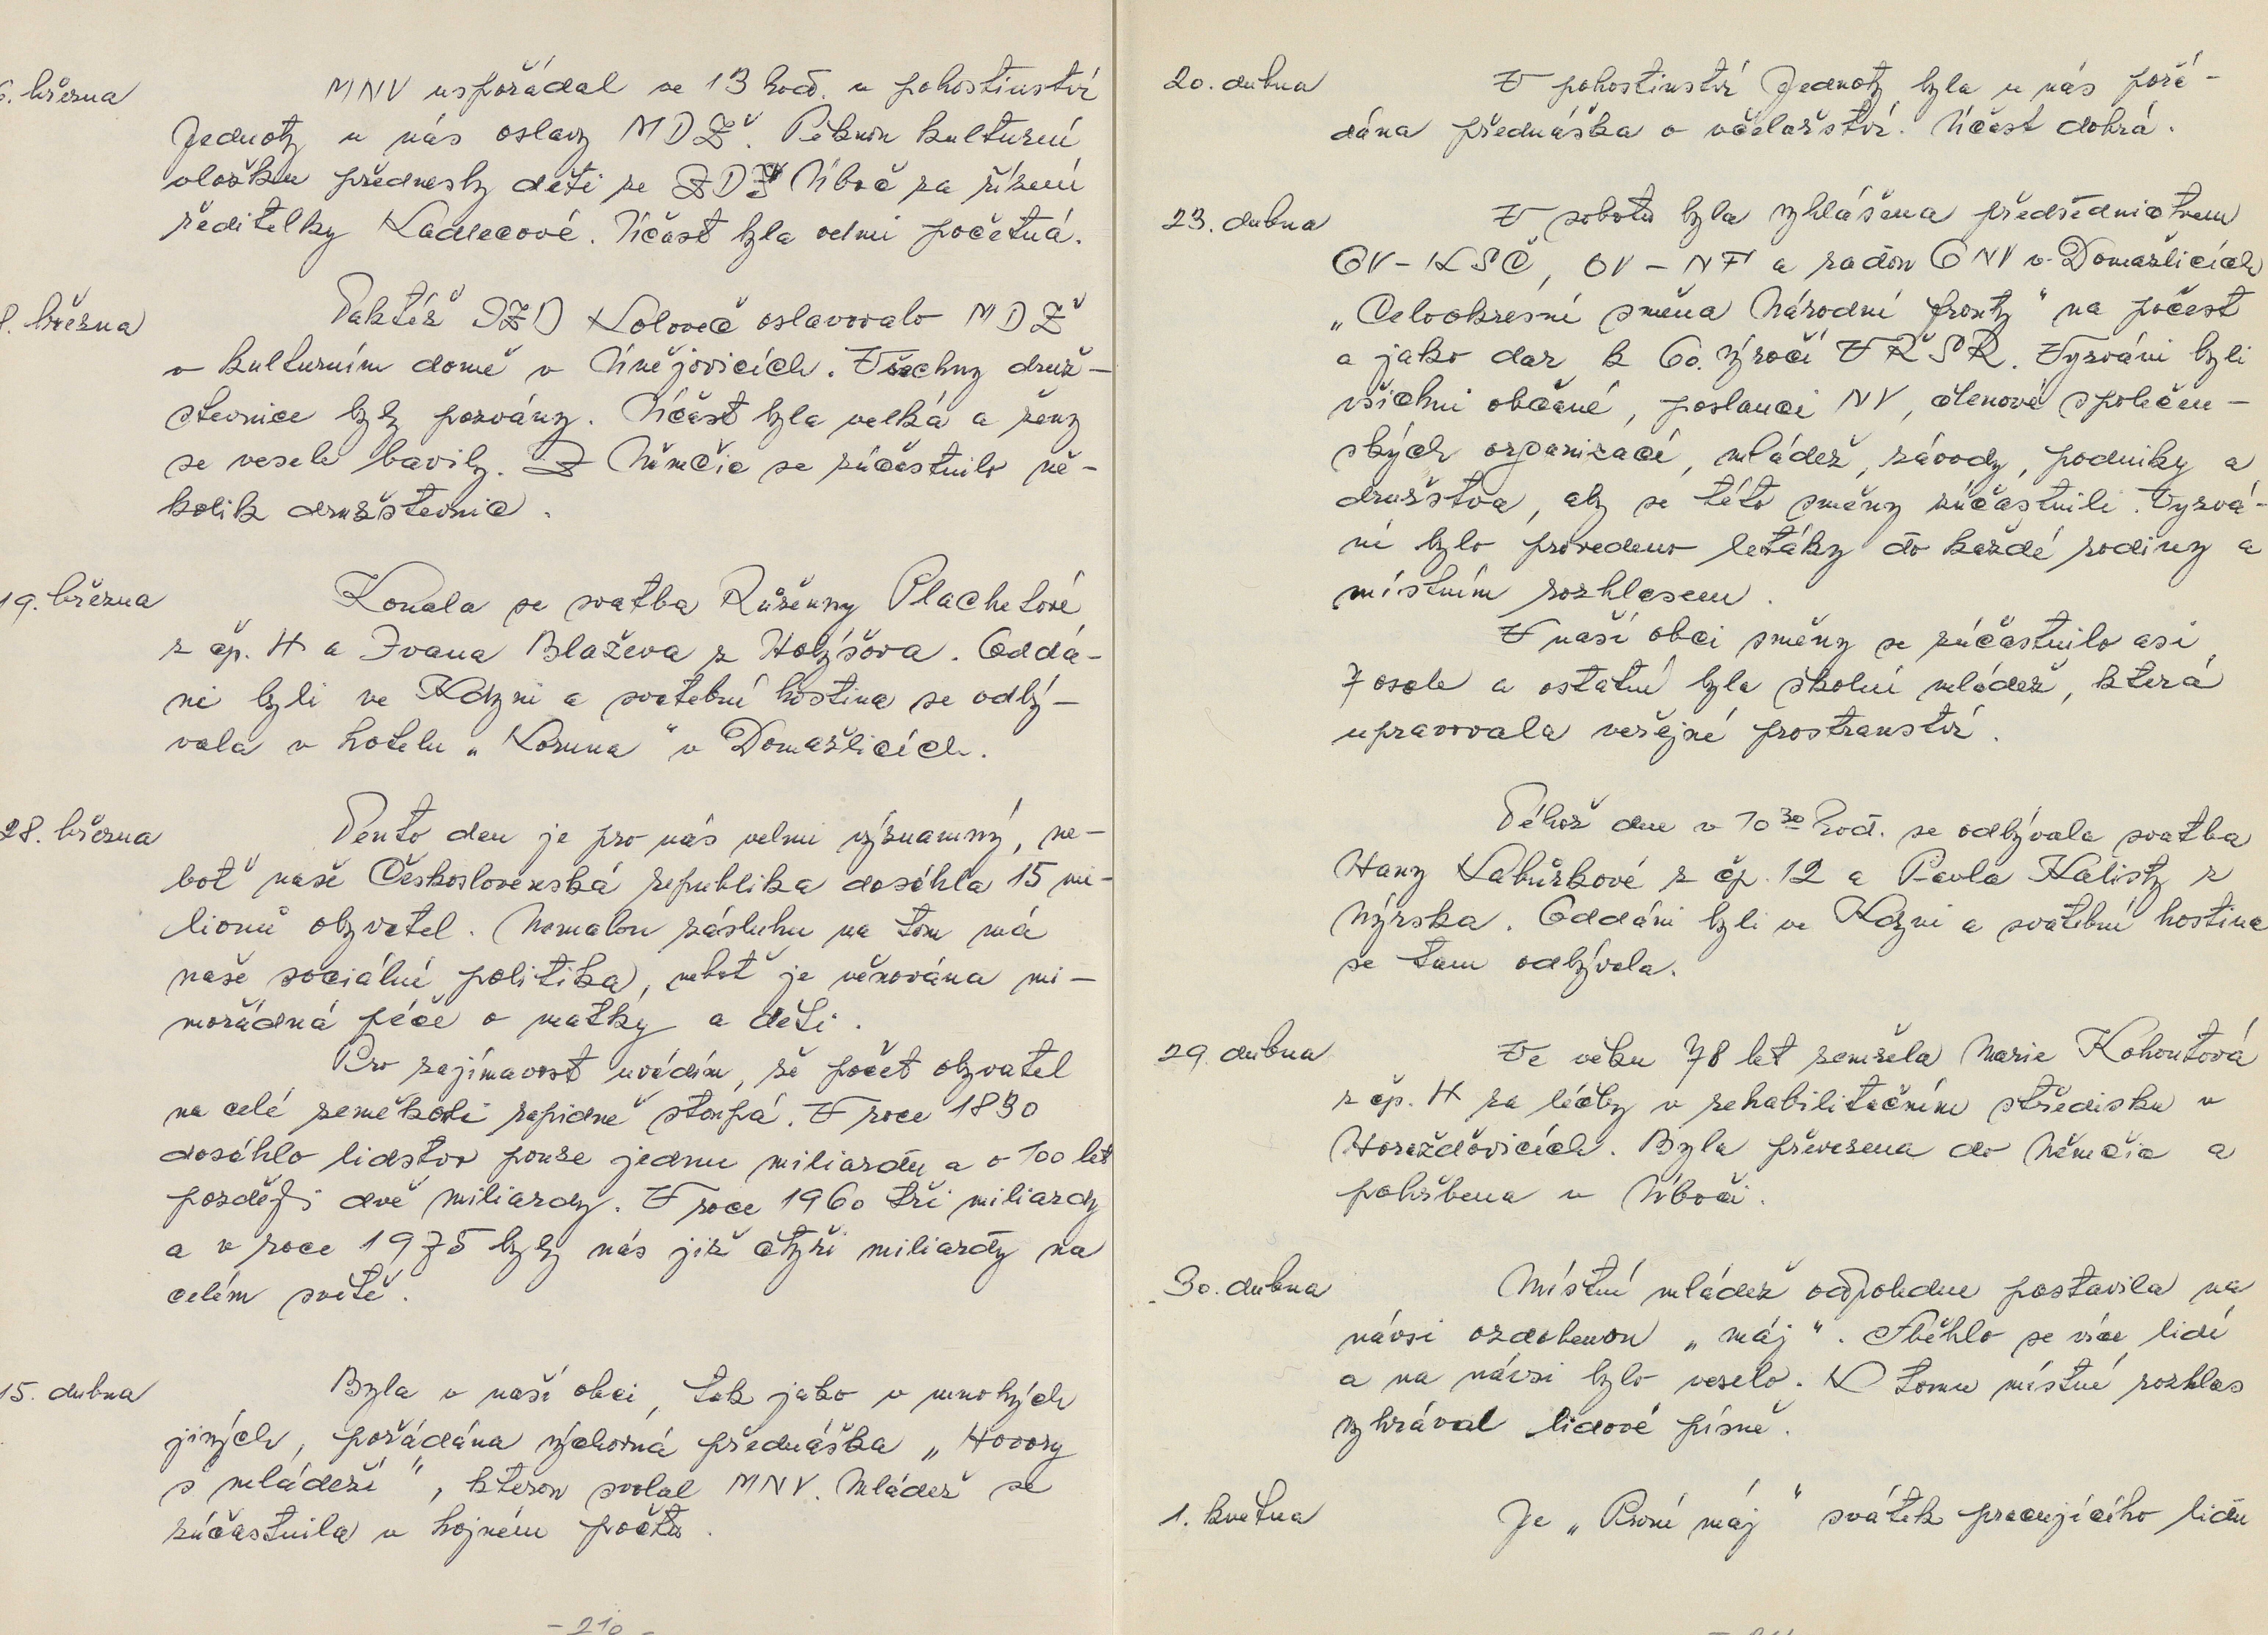 6. března MNV uspořádal ve 13 hod. v pohostinství
Jednoty u nás oslavy MDŽ. Pěknou kulturní
vložku přednesly děti ze ZDŠ Úboč za řízení
ředitelky Kadlecové. Účast byla velmi početná.
8. března Taktéž JZD Koloveč oslavovalo MDŽ
v kulturním domě v Únějovicích. Všechny druž-
stevnice byly pozvány. Účast byla velká a ženy
se vesele bavily. Z Němčic se zúčastnilo ně-
kolik družstevnic.
19. března Konala se svatba Růženny Plachetové
z čp. 4 a Ivana Blaževa z Holýšova. Oddá-
ni byli ve Kdyni a svatební hostina se odbý-
vala v hotelu „Koruna" v Domažlicích.
28. března Tento den je pro nás velmi významný, ne-
boť naše Československá republika dosáhla 15 mi-
lionů obyvatel. Nemalou zásluhu na tom má
naše sociální politika, neboť je věnována mi-
mořádná péče o matky a děti.
Pro zajímavost uvádím, že počet obyvatel
na celé zeměkouli rapidně stoupá. V roce 1830
dosáhlo lidstvo pouze jednu miliardu a o 100 let
později dvě miliardy. V roce 1960 tři miliardy
a v roce 1975 byly nás již čtyři miliardy na
celém světě.
15. dubna Byla v naší obci, tak jako v mnohých
jiných, pořádána výchovná přednáška „Hovory
s mládeží", kterou svolal MNV. Mládež se
zúčastnila v hojném počtu.
- 210 -
20. dubna V pohostinství Jednoty byla u nás pořá-
dána přednáška o včelařství. Účast dobrá.
23. dubna V sobotu byla vyhlášena předsednictvem
OV-KSČ, OV-NF a radou ONV v Domažlicích
„Celookresní směna Národní fronty" na počest
a jako dar k 60. výročí VŘSR. Vyzváni byli
všichni občané, poslanci NV, členové společen-
ských organizací, mládež, závody, podniky a
družstva, aby se této směny zúčastnili. Vyzvá-
ní bylo provedeno letáky do každé rodiny a
místním rozhlasem.
V naší obci směny se zúčastnilo asi
7 osob a ostatní byla školní mládež, která
upravovala veřejné prostranství.
Téhož dne v 10 30 hod. se odbývala svatba
Hany Kabuřkové z čp. 12 a Pavla Kalisty z
Nýrska. Oddáni byli ve Kdyni a svatební hostina
se tam odbývala.
29. dubna Ve věku 78 let zemřela Marie Kohoutová
z čp. 4 za léčby v rehabilitačním středisku v
Horažďovicích. Byla převezena do Němčic a
pohřbena v Úboči.
30. dubna Místní mládež odpoledne postavila na
návsi ozdobenou „máj". Sběhlo se více lidí
a na návsi bylo veselo. K tomu místní rozhlas
vyhrával lidové písně.
1. května Je „První máj" svátek pracujícího lidu